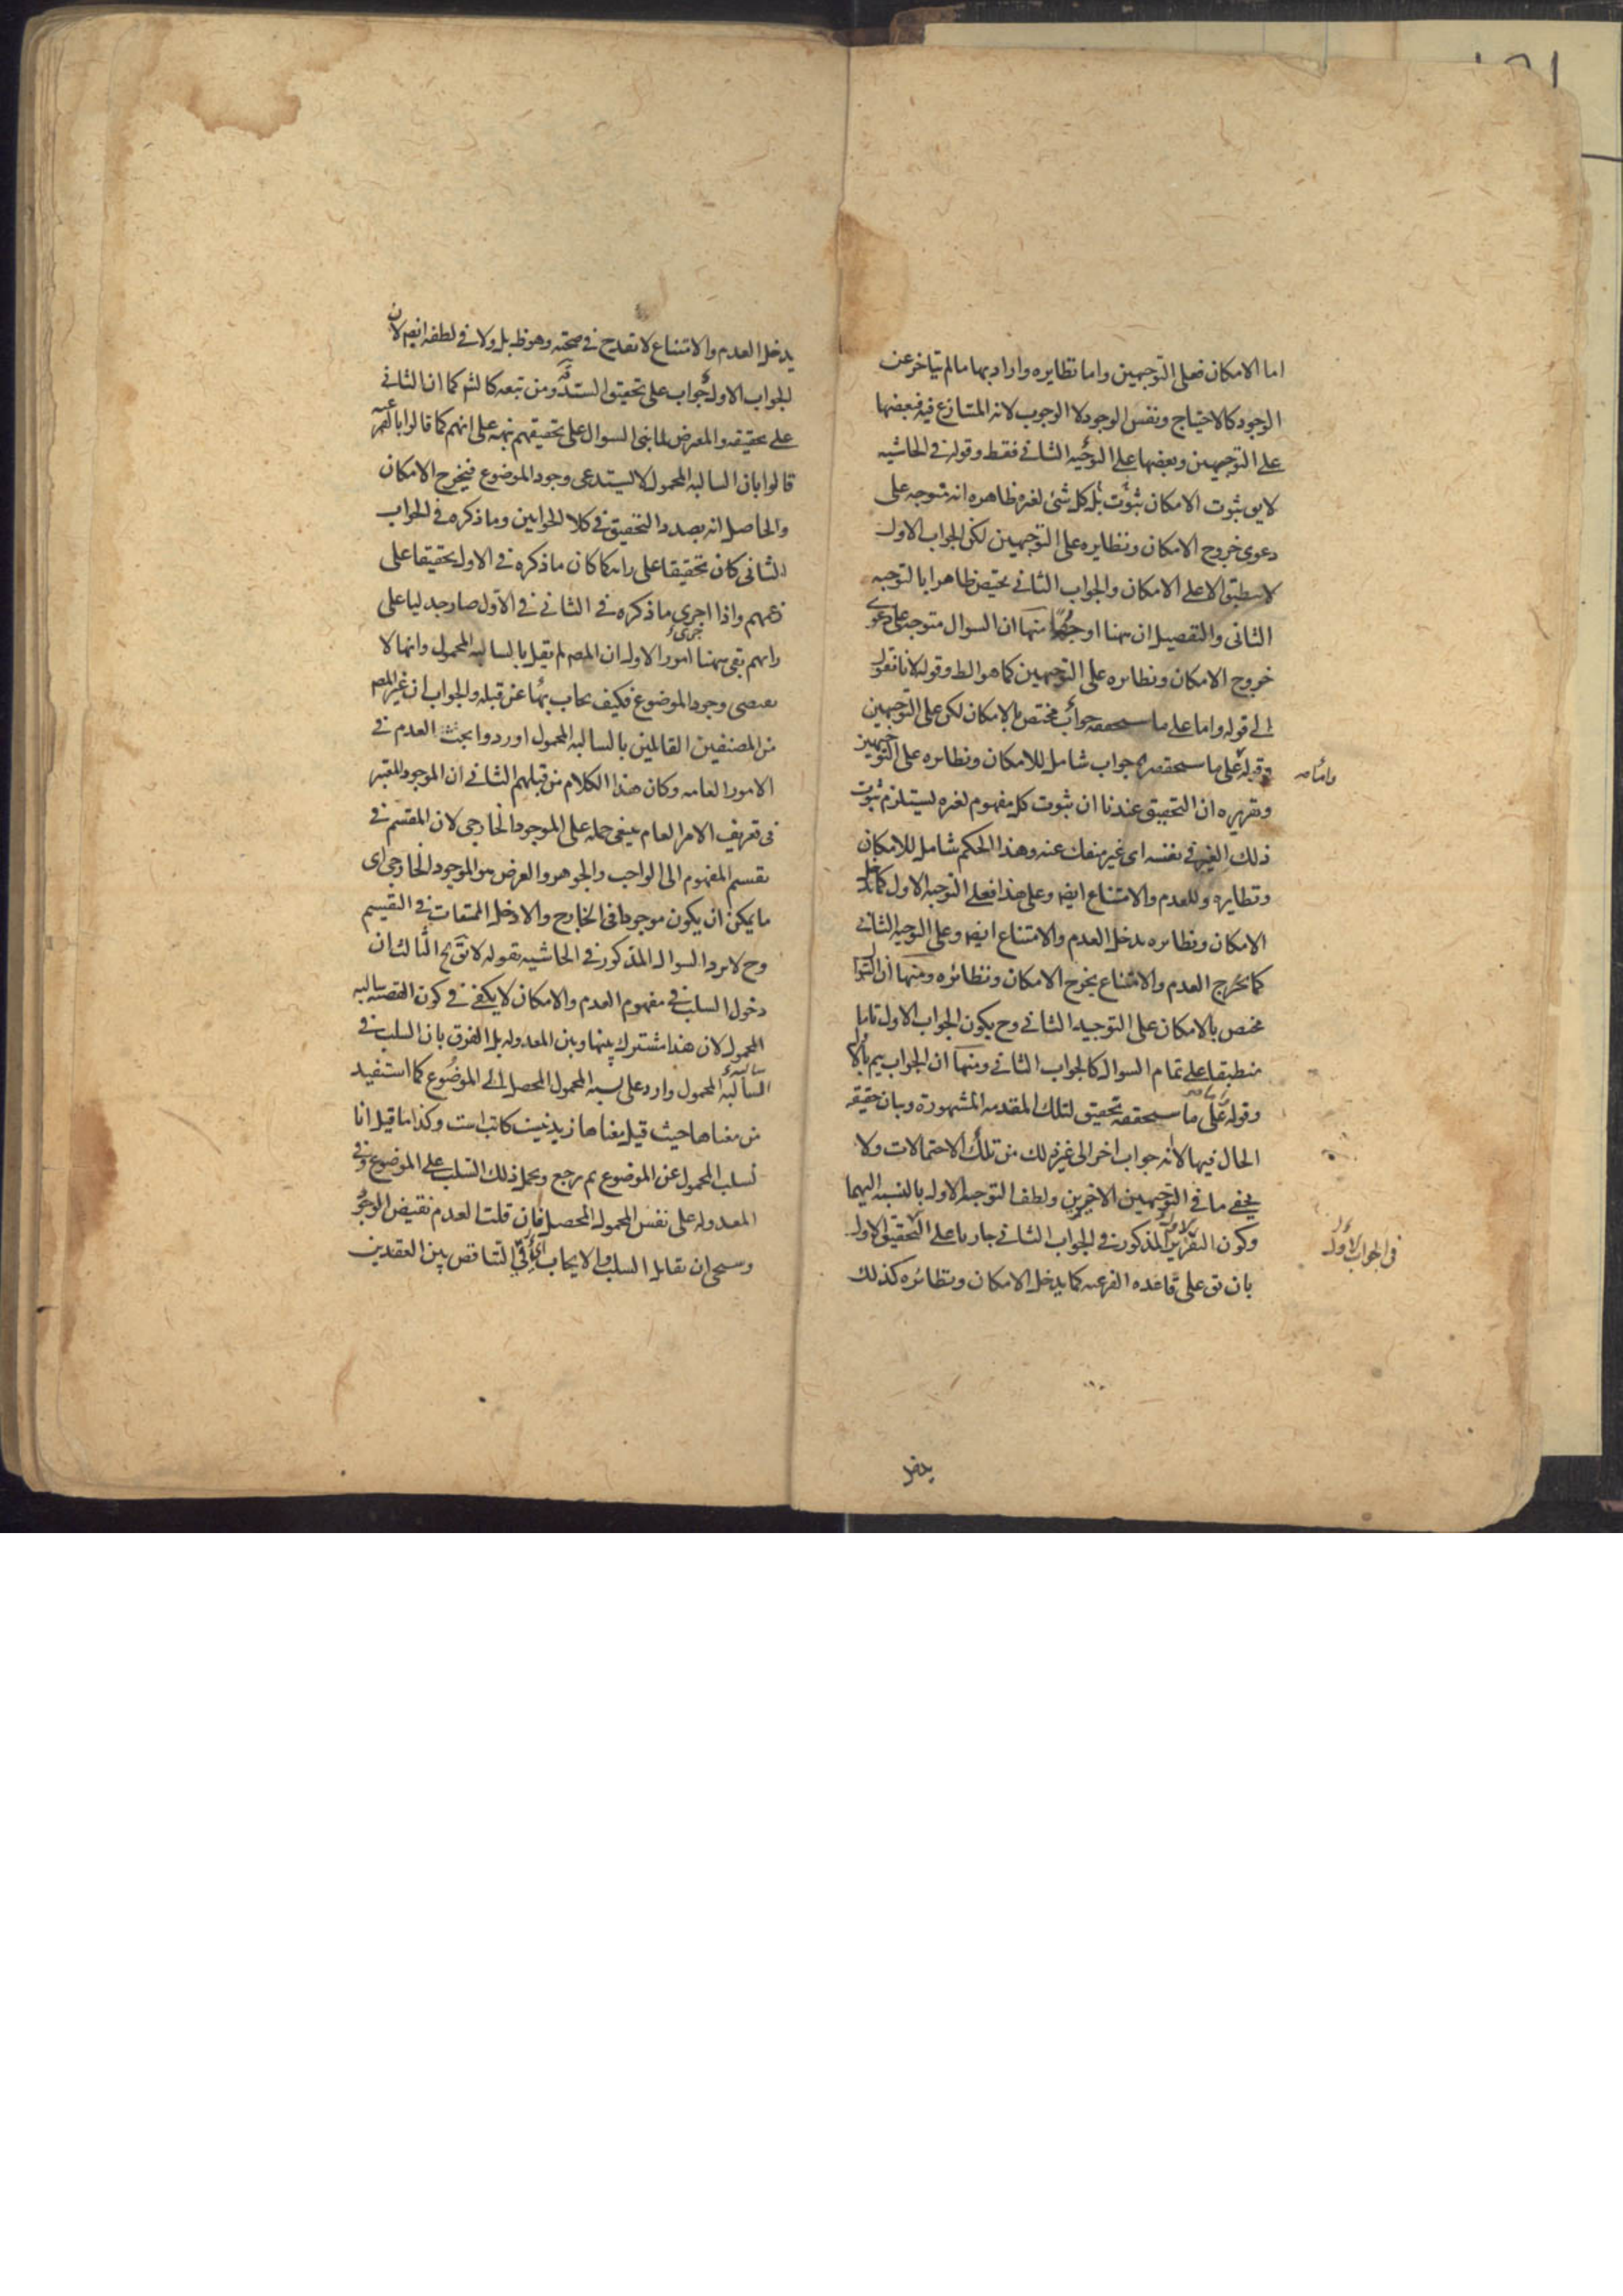 اما الامكان فعلى التوجيهين واما نظايره واراد بها ما لم يتاخر عن
الوجود كالاحتياج ونفس الوجود لا الوجوب لانه المتنازع فيه فبعضها
على التوجيهين وبعضها على التوجيه الثانى فقط وقوله فى الحاشيه
لايق ثبوت الامكان بل ثبوت كل شئ لغيره ظاهره انه متوجه على
دعوى خروج الامكان ونظايره على التوجيهين لكن الجواب الاول
لا ينطبق الا على الامكان والجواب الثانى يختص ظاهرا بالتوجيه
الثانى والتفصيل ان ههنا اوجها منها ان السوال متوجه على دعوى
خروج الامكان ونظايره على التوجيهين كما هو الظ وقوله لانا نقول
الى قوله واما على ما سنحققه جواب مختص بالامكان لكن على التوجيهين
وقوله على ما سنحققه جواب شامل للامكان ونظايره على التوجيهين
واما
وتقريره ان التحقيق عندنا ان ثبوت كل مفهوم لغيره يستلزم ثبوت
ذلك الغير فى نفسه اى غير منفك عنه وهذا الحكم شامل للامكان
ونظايره وللعدم والامتناع ايض وعلى هذا فعلى التوجيه الاول كما يدخل
الامكان ونظايره يدخل العدم والامتناع ايض وعلى التوجيه الثانى
كما يخرج العدم والامتناع يخرج الامكان ونظائره ومنها ان السوال
مختص بالامكان على التوجيه الثانى وح يكون الجواب الاول تاما
منطبقا على تمام السوال كالجواب الثانى ومنها ان الجواب يتم بالاول
وقوله على ما سنحققه تحقيق لتلك المقدمه المشهورة وبيان حقيقه
الحال فيها لا انه جواب اخر الى غير ذلك من تلك الاحتمالات ولا
يخفى ما فى التوجيهين الاخيرين ولطف التوجيه الاول بالنسبه اليهما
وكون التقرير المذكور فى الجواب الثانى جاريا على التحقيق الاول
فى الجواب الاول
بان يق على قاعده الفرعيه كما يدخل الامكان ونظائره كذلك
يدخل
يدخل العدم والامتناع لا تقدح فى صحته وهو ظ بل ولا فى لطفه ايض لان
الجواب الاول جواب على تحقيق السيد قده ومن تبعه كالشم كما ان الثانى
على تحقيقه والمعرض لما بنى السوال على تحقيقهم نبه على انهم كما قالوا بالفرعيه
قالوا بان السالبه المحمول لا يستدعى وجود الموضوع فيخرج الامكان
والحاصل انه بصدد التحقيق فى كلا الجوابين وما ذكره فى الجواب
الثانى كان تحقيقا على رايه كما كان ما ذكره فى الاول تحقيقا على
زعمهم واذا اجرى ما ذكره فى الثانى فى الاول صار جدليا على
رايهم بقى ههنا امور الاول ان المصـ لم يقل بالسالبه المحمول وانها لا
يقتضى وجود الموضوع فكيف يجاب بها عن قبله والجواب ان غير المصـ
من المصنفين القائلين بالسالبه المحمول اوردوا بحث العدم فى
الامور العامه وكان هذا الكلام من قبلهم الثانى ان الموجود المعتبر
فى تعريف الامر العام ينبغى حمله على الموجود الخارجى لان المقسم فى
تقسيم المفهوم الى الواجب والجوهر والعرض هو الموجود الخارجى اى
ما يمكن ان يكون موجودا فى الخارج والا دخل الممتنعات فى التقسيم
وح لا يرد السوال المذكور فى الحاشيه بقوله لا يق الخ الثالث ان
دخول السلب فى مفهوم العدم والامكان لا يكفى فى كون القضيه سالبه
المحمول لان هذا مشترك بينها وبين المعدوله بل الفرق بان السلب فى
السالبه المحمول وارد على نسبه المحمول المحصل الى الموضوع كما استفيد
من معناها حيث قيل معناها زيد نيست كاتب است وكذا ما قيل انا
نسلب المحمول عن الموضوع ثم نرجع ونحمل ذلك السلب على الموضوع وفى
المعدوله على نفس المحمول المحصل فان قلت العدم نقيض الوجود
وسيجى ان تقابل السلب والايجاب اى فى التناقض بين العقدين